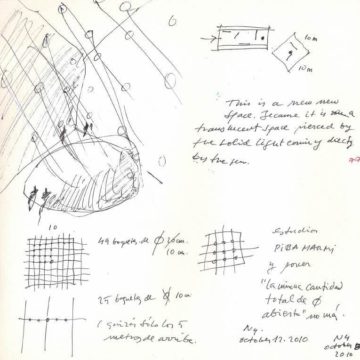 10m
10m
This is a new new
space. Because it is a
translucent space pierced by
the solid light coming directly
by the sun.
10
49 boquetes de Ø
10 m.
25 boquetes de Ø 10 m
( quizás sólo los 5
metros de arriba.
estudiar
y poner
"la misma cantidad
total de Ø
abierta" no más.
N4.
october 12. 2010
N4
october
2010